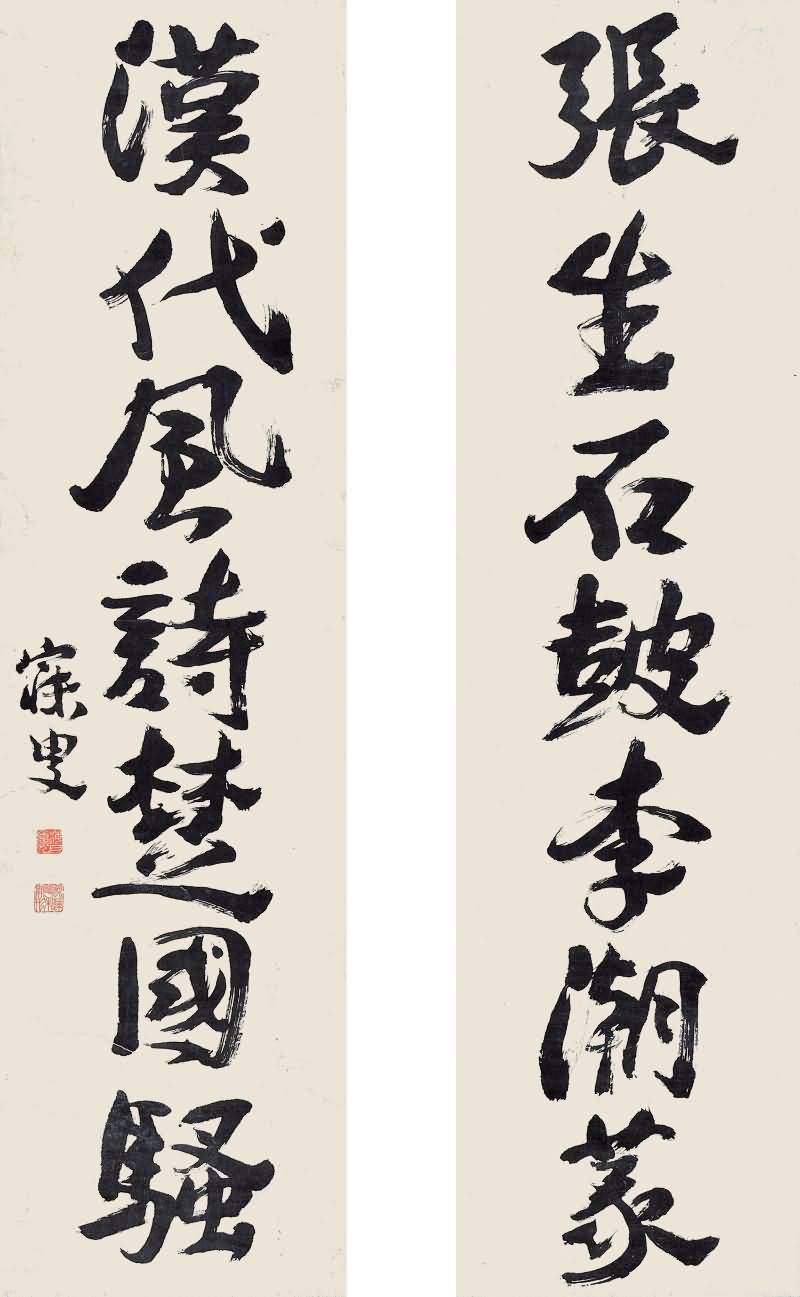 張生石皷李潮篆
漢代風詩楚國騷
寐叟